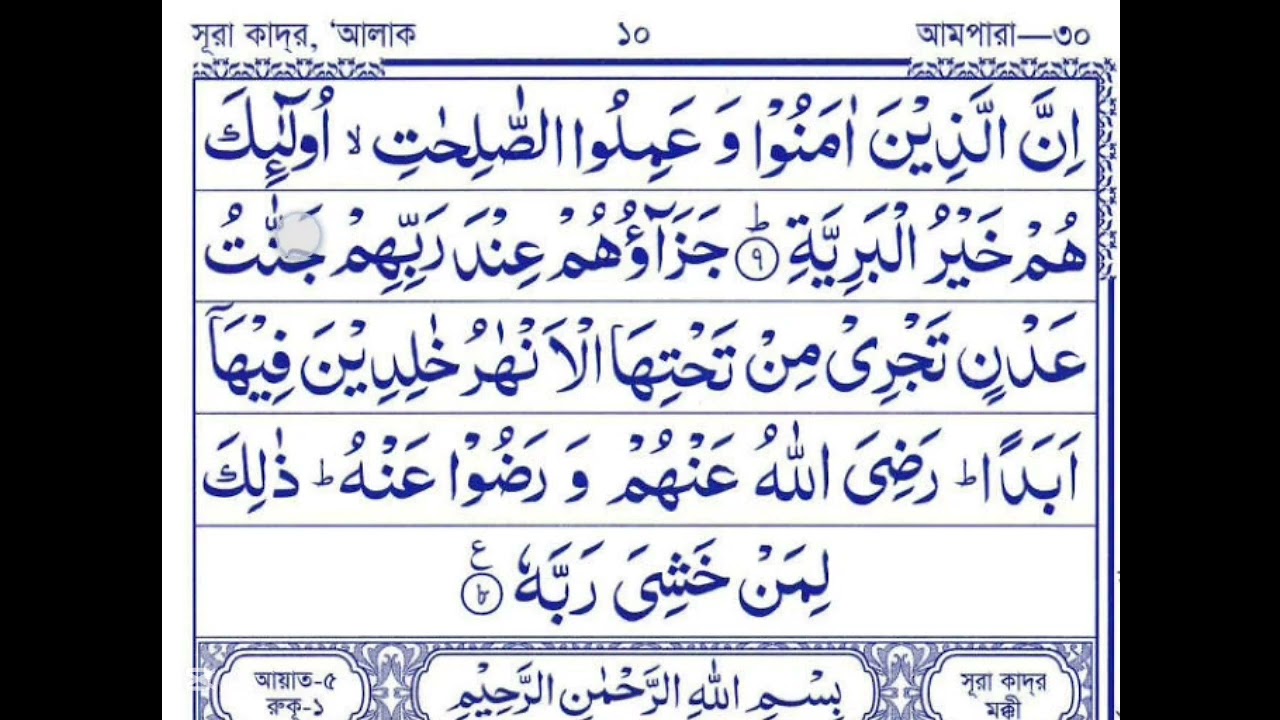 সূরা কাদ্‌র, ‘আলাক ১০ আমপারা—৩০
اِنَّ الَّذِيْنَ اٰمَنُوْا وَ عَمِلُوا الصّٰلِحٰتِ ۙ اُولٰٓئِكَ
هُمْ خَيْرُ الْبَرِيَّةِ ؕ ﴿٩﴾ جَزَآؤُهُمْ عِنْدَ رَبِّهِمْ جَنّٰتُ
عَدْنٍ تَجْرِىْ مِنْ تَحْتِهَا الْاَنْهٰرُ خٰلِدِيْنَ فِيْهَآ
اَبَدًا ؕ رَضِىَ اللّٰهُ عَنْهُمْ وَ رَضُوْا عَنْهُ ؕ ذٰلِكَ
لِمَنْ خَشِىَ رَبَّهٗ ﴿۸﴾ ع
সূরা কাদ্‌র بِسْمِ اللّٰهِ الرَّحْمٰنِ الرَّحِيْمِ আয়াত-৫
মক্কী রুকূ-১